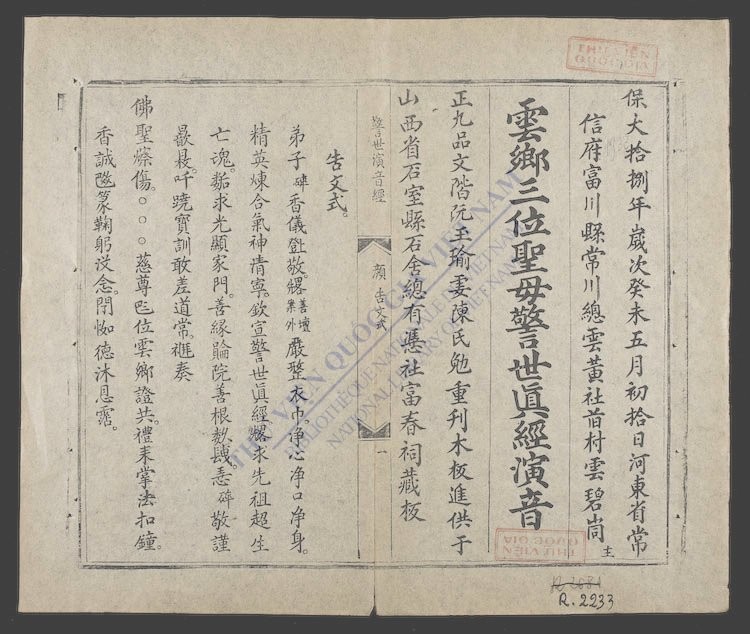 保大拾捌年歲次癸未五月初拾日河東省常
信府富川縣常川總雲黃社首村雲碧峝主
雲鄉三位聖母警世真經演音
正九品文階阮玉瑜妻陳氏勉重刊木板進供于
山西省石室縣石舍總有憑社富春祠藏板
警世演音經
顏 告文式
一
告文式。
弟子碎香儀𤼸敬。𠳨善壇 集外嚴整衣巾。净心净口净身。
精英煉合氣神清寧。欽宣警世真經。求先祖超生
亡魂。求光顯家門。善緣院善根。碎敬謹
吀曉寶訓敢差道常。奏
佛聖傷。○○○慈尊位雲鄉證共。禮来掌法扣鐘。
香誠篆鞠躬念。德沐恩。
THƯ VIỆN QUỐC GIA
THƯ VIỆN QUỐC GIA
THƯ VIỆN QUỐC GIA VIỆT NAM
BIBLIOTHÈQUE NATIONALE DU VIETNAM
NATIONAL LIBRARY OF VIETNAM
R. 2233